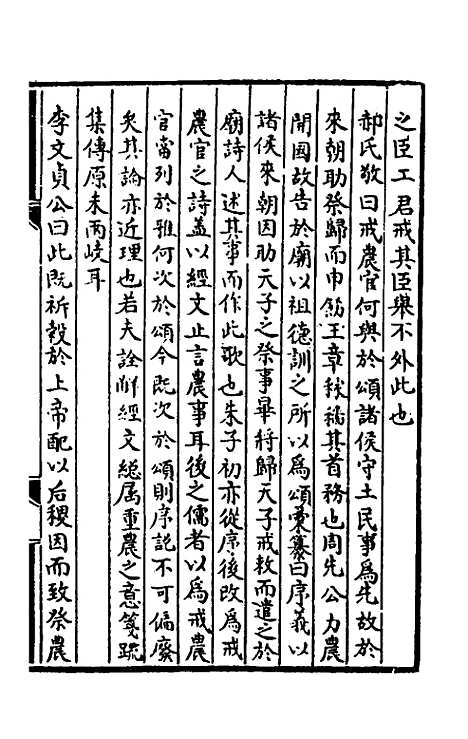 之臣工君戒其臣舉不外此也
郝氏敬曰戒農官何與於頌諸侯守土民事為先故於
來朝助祭歸而申飭王章稼穡其首務也周先公力農
開國故告於廟以祖德訓之所以為頌彙纂曰序義以
諸侯來朝因助天子之祭事畢將歸天子戒敕而遣之於
廟詩人述其事而作此歌也朱子初亦從序後改為戒
農官之詩蓋以經文止言農事耳後之儒者以為戒農
官當列於雅何次於頌今既次於頌則序說不可偏廢
矣其論亦近理也若夫詮解經文總屬重農之意箋疏
集傳原未兩岐耳
李文貞公曰此既祈穀於上帝配以后稷因而致祭農